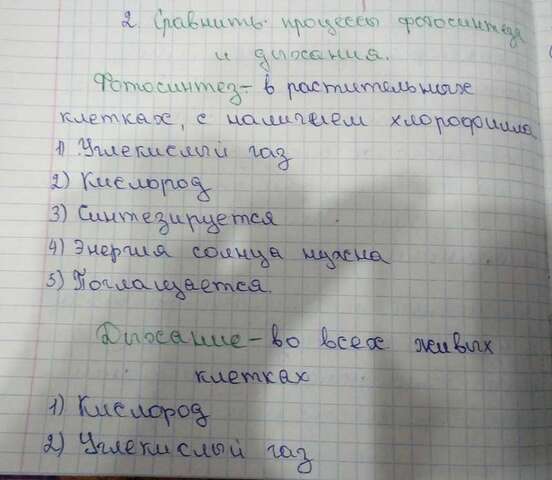 2. Сравнить процессы фотосинтеза
и дыхания.
Фотосинтез - в растительных
клетках, с наличием хлорофилла
1) Углекислый газ
2) Кислород
3) Синтезируется
4) Энергия солнца нужна
5) Поглащается.
Дыхание - во всех живых
клетках
1) Кислород
2) Углекислый газ